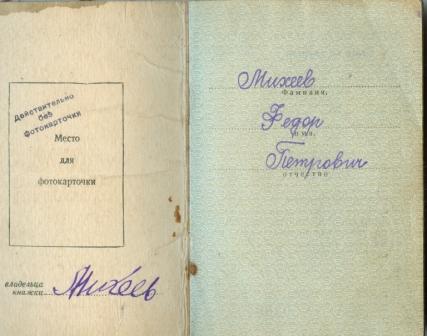 Действительно
без
фотокарточки
Место
для
фотокарточки
владельца
книжки Михеев
Михеев
Фамилия,
Федор
имя,
Петрович
отчество